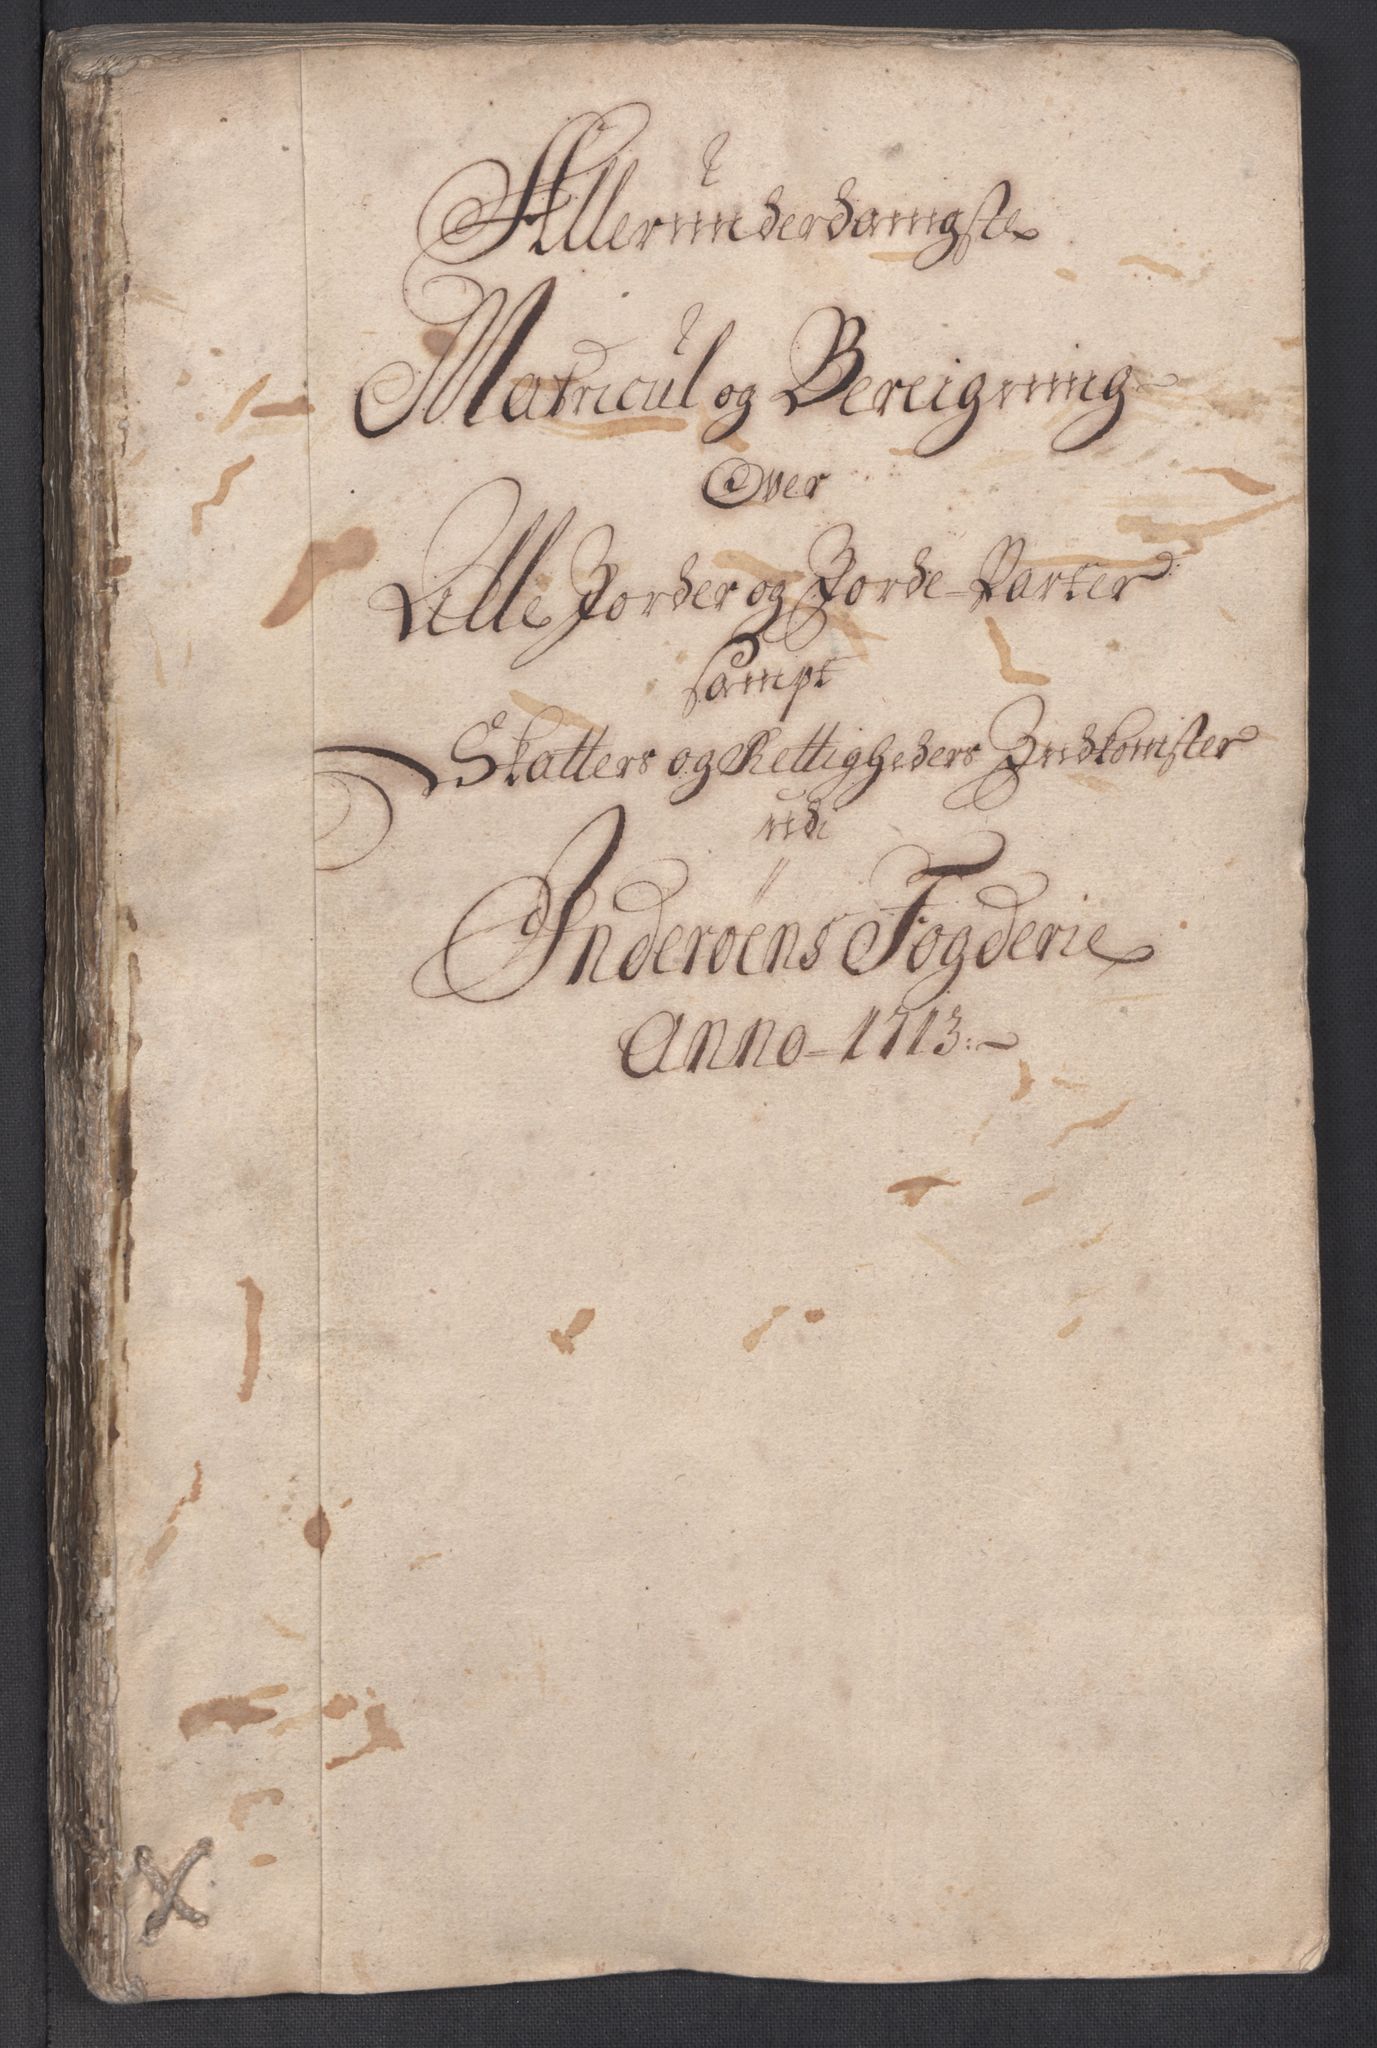 Allerunderdanigste
Matricul og Bereigning
Over
Alle Jorder og Jorde-Parter
sampt
Skatters og Rettigheders Indkomster
udi
Inderøens Fogderie
Anno-1713: